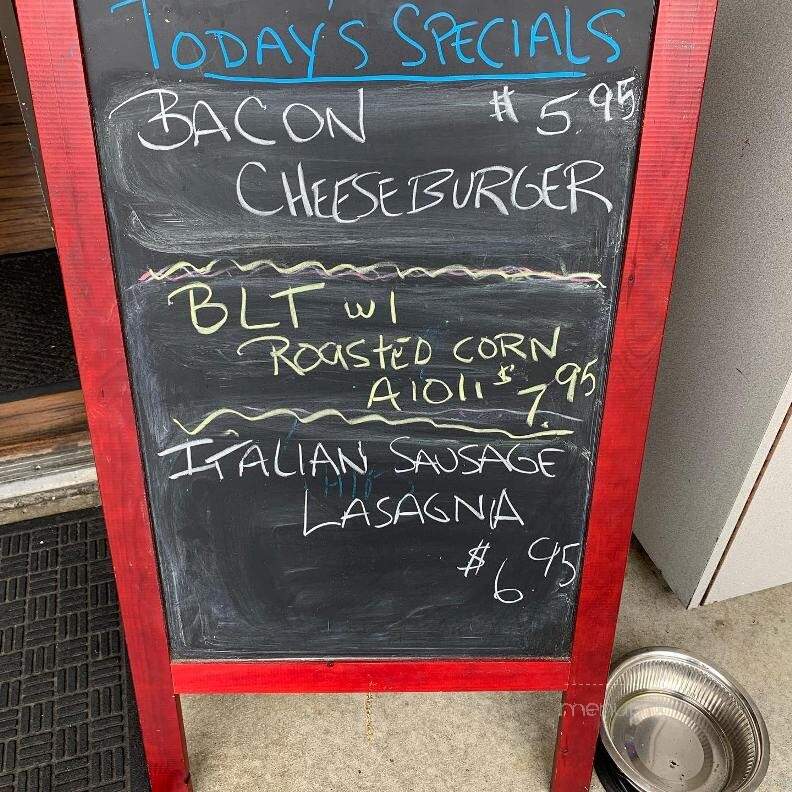 TODAY'S SPECIALS
BACON $5.95
CHEESEBURGER
BLT w/
ROASTED CORN
AIOLI $7.95
ITALIAN SAUSAGE
LASAGNA
$6.95